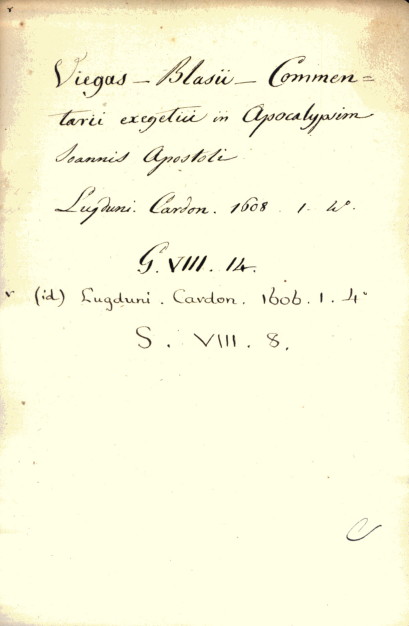 Viegas – Blasii – Commen=
tarii exegetici in Apocalypsim
Joannis Apostoli
Lugduni. Cardon. 1608. 1. 4°.
G. VIII. 14.
(id) Lugduni. Cardon. 1606. 1. 4°
S. VIII. 8.
C